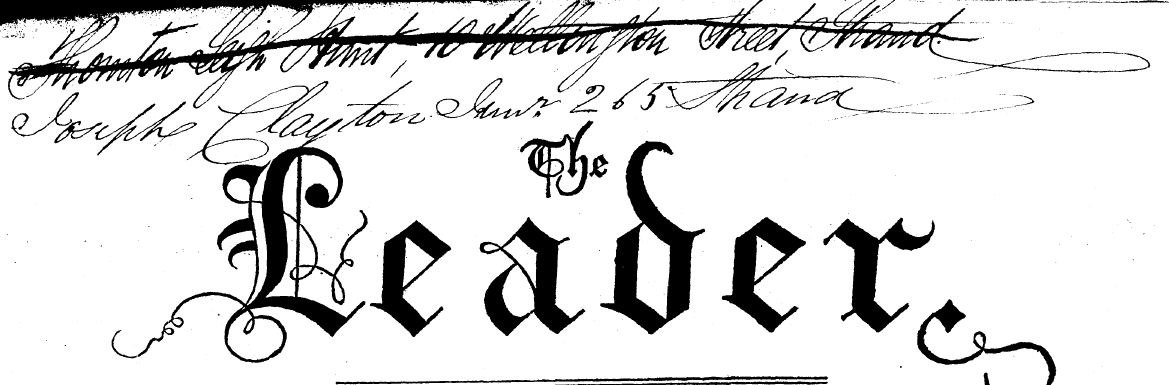 Thornton Leigh Hunt, 10 Wellington Street, Strand.
Joseph Clayton Junr. 265 Strand
The
Leader.